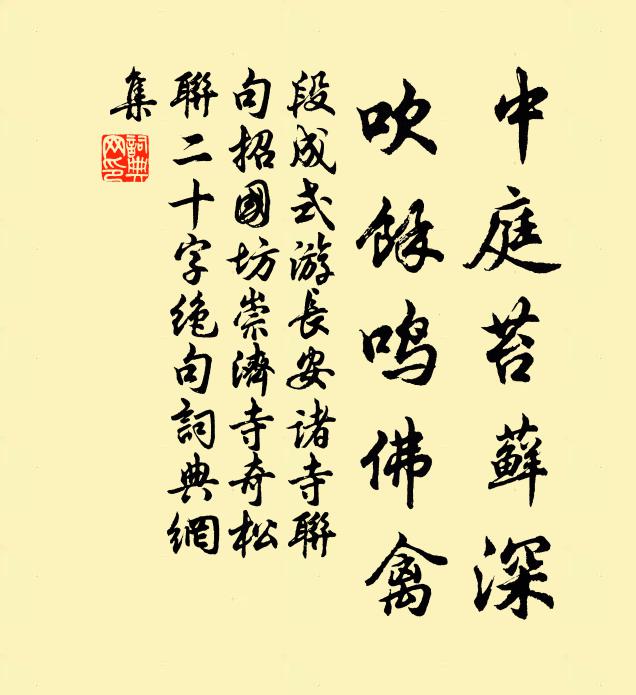 中庭苔蘚深
吹餘鳴佛禽
段成式游長安諸寺聯
句招國坊崇濟寺奇松
聯二十字绝句詞典網
集
詞典
网印